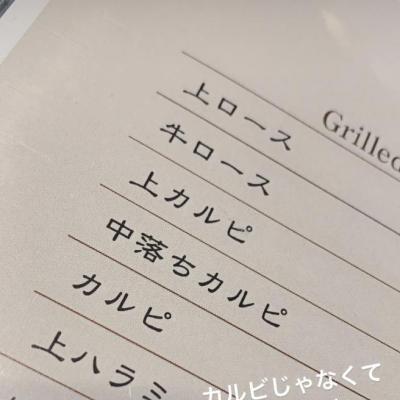 Grilled
上ロース
牛ロース
上カルピ
中落ちカルピ
カルピ
上ハラミ
カルビじゃなくて